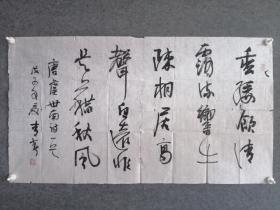 垂緌飲清
露流響出
疎桐居高
聲自遠非
是藉秋風
唐虞世南詩一首
戊子年夏